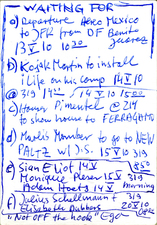 WAITING FOR
a) Departure Aero Mexico
to JFK from DF Benito
13 V 10 10 30 Juarez
b) Kojak Martin to install
iLife on his comp 14 V 10
@ 319 14 V / 14 V 10 15 00
c) Homer Pimentel @ 219
to show home to FERRAGAMO
d) Marlis Momber to go to NEW
PALTZ w/ D.S. 15 V 10 319
e) Sian Eliot 14 V @50
Monique Pleser 15 V 319
Adam Hoets 14 V morning
f) Julius Schellmann + 319
Elisabeth Dabbers 20 V 10
"Not off the hook" Ego